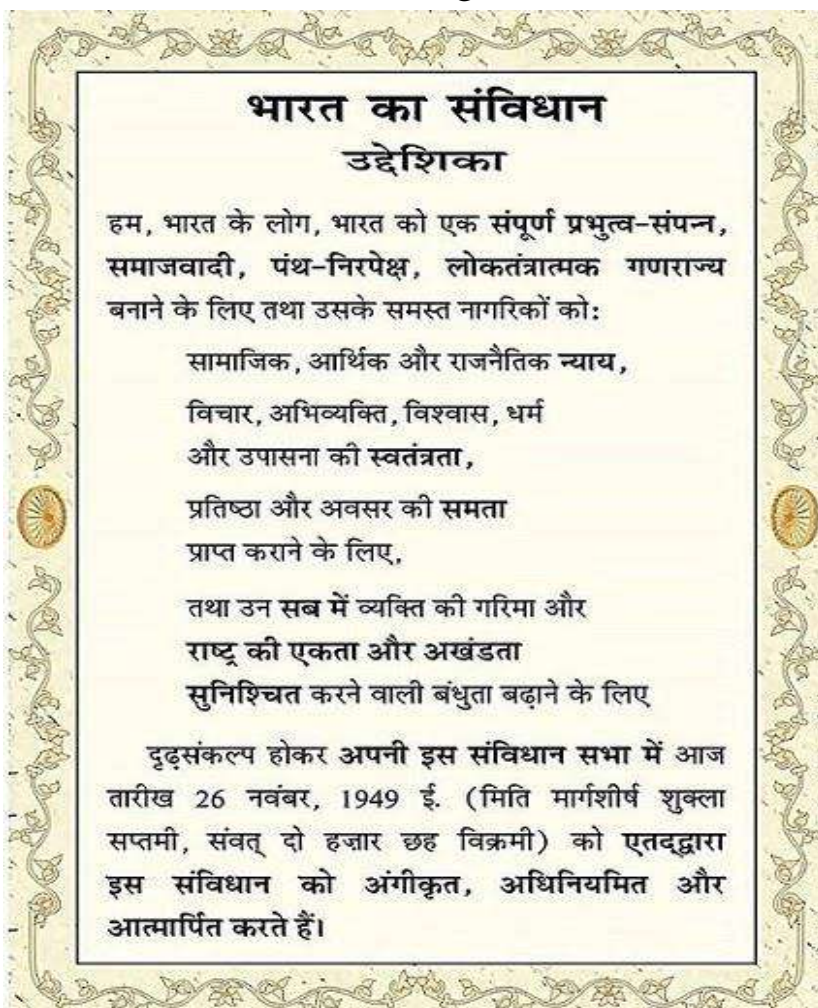 भारत का संविधान
उद्देशिका
हम, भारत के लोग, भारत को एक संपूर्ण प्रभुत्व-संपन्न,
समाजवादी, पंथ-निरपेक्ष, लोकतंत्रात्मक गणराज्य
बनाने के लिए तथा उसके समस्त नागरिकों को:
सामाजिक, आर्थिक और राजनैतिक न्याय,
विचार, अभिव्यक्ति, विश्वास, धर्म
और उपासना की स्वतंत्रता,
प्रतिष्ठा और अवसर की समता
प्राप्त कराने के लिए,
तथा उन सब में व्यक्ति की गरिमा और
राष्ट्र की एकता और अखंडता
सुनिश्चित करने वाली बंधुता बढ़ाने के लिए
दृढ़संकल्प होकर अपनी इस संविधान सभा में आज
तारीख 26 नवंबर, 1949 ई. (मिति मार्गशीर्ष शुक्ला
सप्तमी, संवत् दो हज़ार छह विक्रमी) को एतद्द्वारा
इस संविधान को अंगीकृत, अधिनियमित और
आत्मार्पित करते हैं।